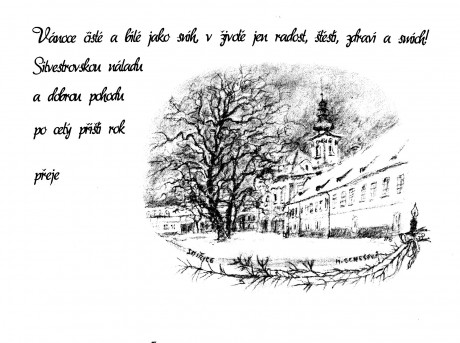 Vánoce čisté a bílé jako sníh, v životě jen radost, štěstí, zdraví a smích!
Silvestrovskou náladu
a dobrou pohodu
po celý příští rok
přeje